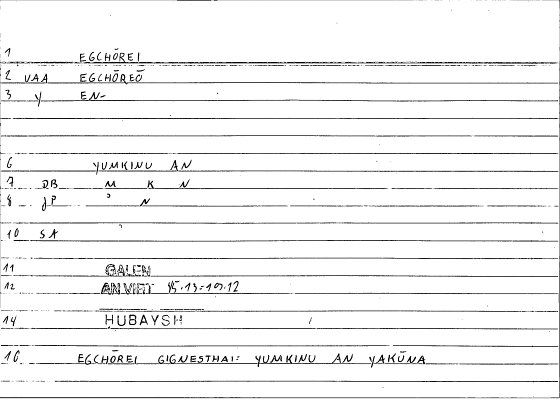 1 EGCHŌREI
2 VAA EGCHŌREŌ
3 y EN-
6 YUMKINU AN
7 DB M K N
8 JP ᵓ N
10 SA
11 GALEN
12 AN VIRT
14 HUBAYSH
16 EGCHŌREI GIGNESTHAI: YUMKINU AN YAKŪNA